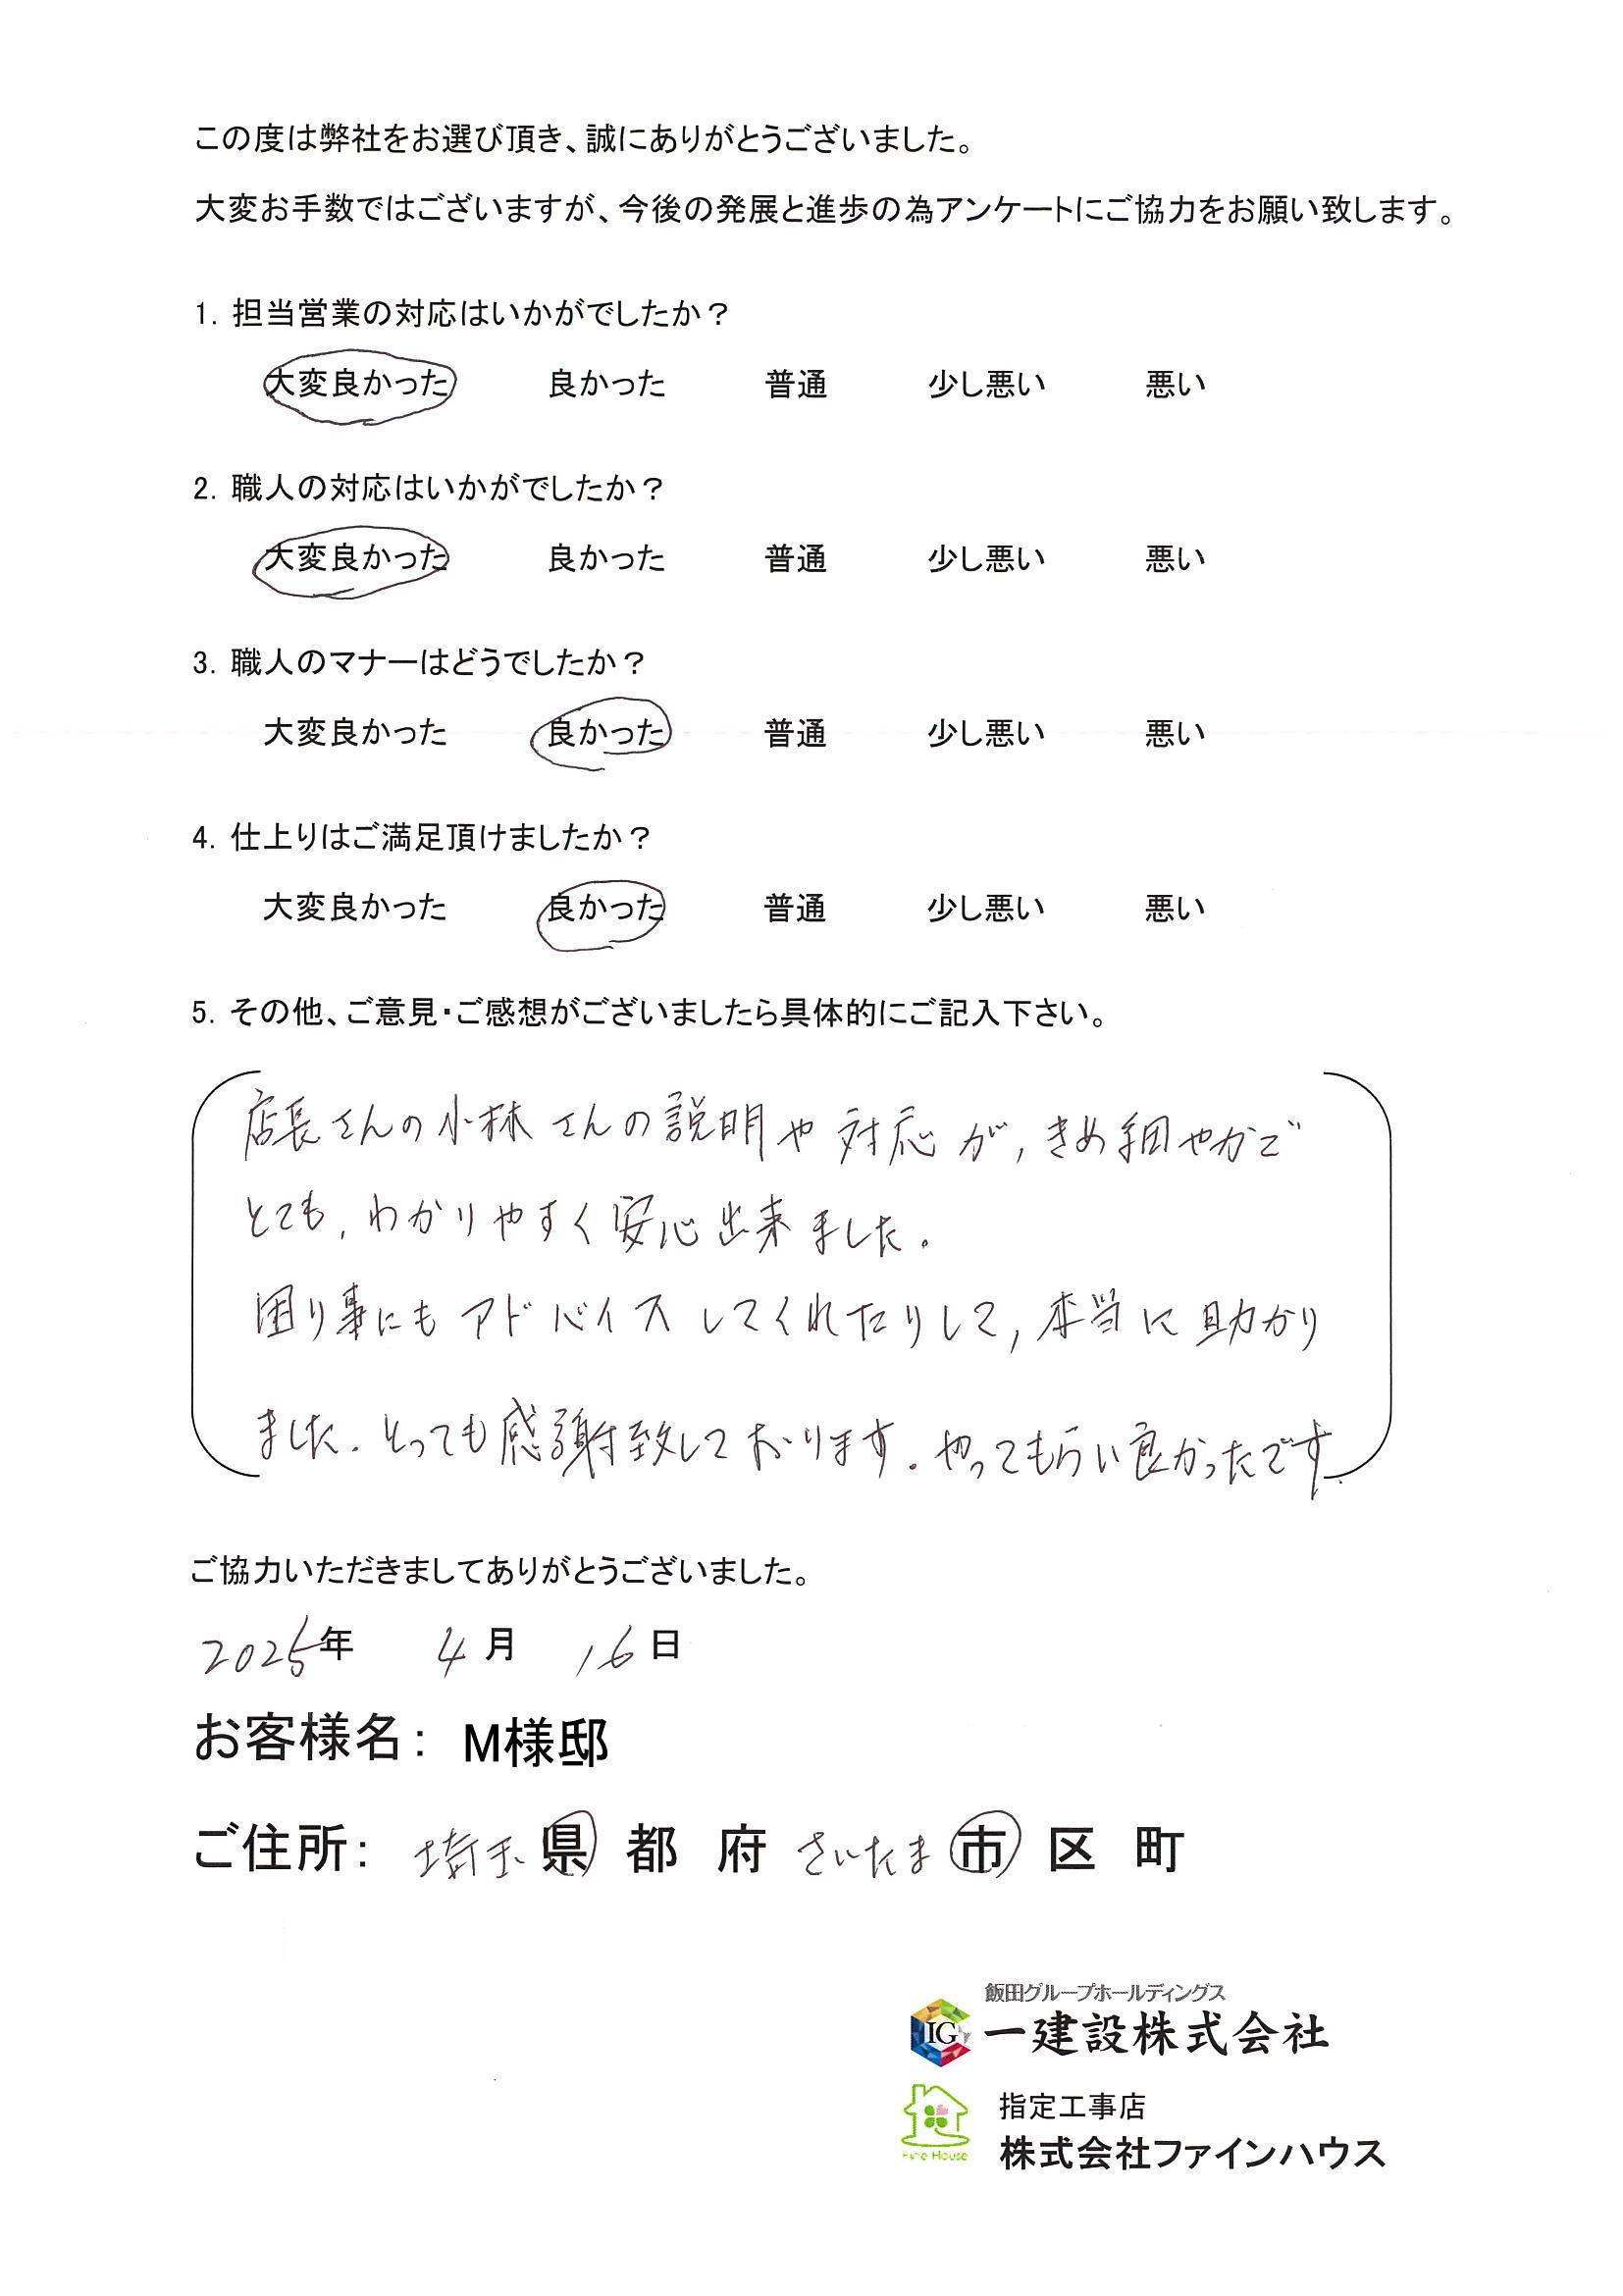 この度は弊社をお選び頂き、誠にありがとうございました。
大変お手数ではございますが、今後の発展と進歩の為アンケートにご協力をお願い致します。
1. 担当営業の対応はいかがでしたか？
大変良かった 良かった 普通 少し悪い 悪い
2. 職人の対応はいかがでしたか？
大変良かった 良かった 普通 少し悪い 悪い
3. 職人のマナーはどうでしたか？
大変良かった 良かった 普通 少し悪い 悪い
4. 仕上りはご満足頂けましたか？
大変良かった 良かった 普通 少し悪い 悪い
5. その他、ご意見・ご感想がございましたら具体的にご記入下さい。
店長さんの小林さんの説明や対応が，きめ細やかで
とても，わかりやすく安心出来ました。
困り事にもアドバイスしてくれたりして，本当に助かり
ました。とっても感謝致しております。やってもらい良かったです。
ご協力いただきましてありがとうございました。
2025年 4月 16日
お客様名： M様邸
ご住所： 埼玉 県 都 府 さいたま 市 区 町
飯田グループホールディングス
IG 一建設株式会社
指定工事店
Fine House 株式会社ファインハウス